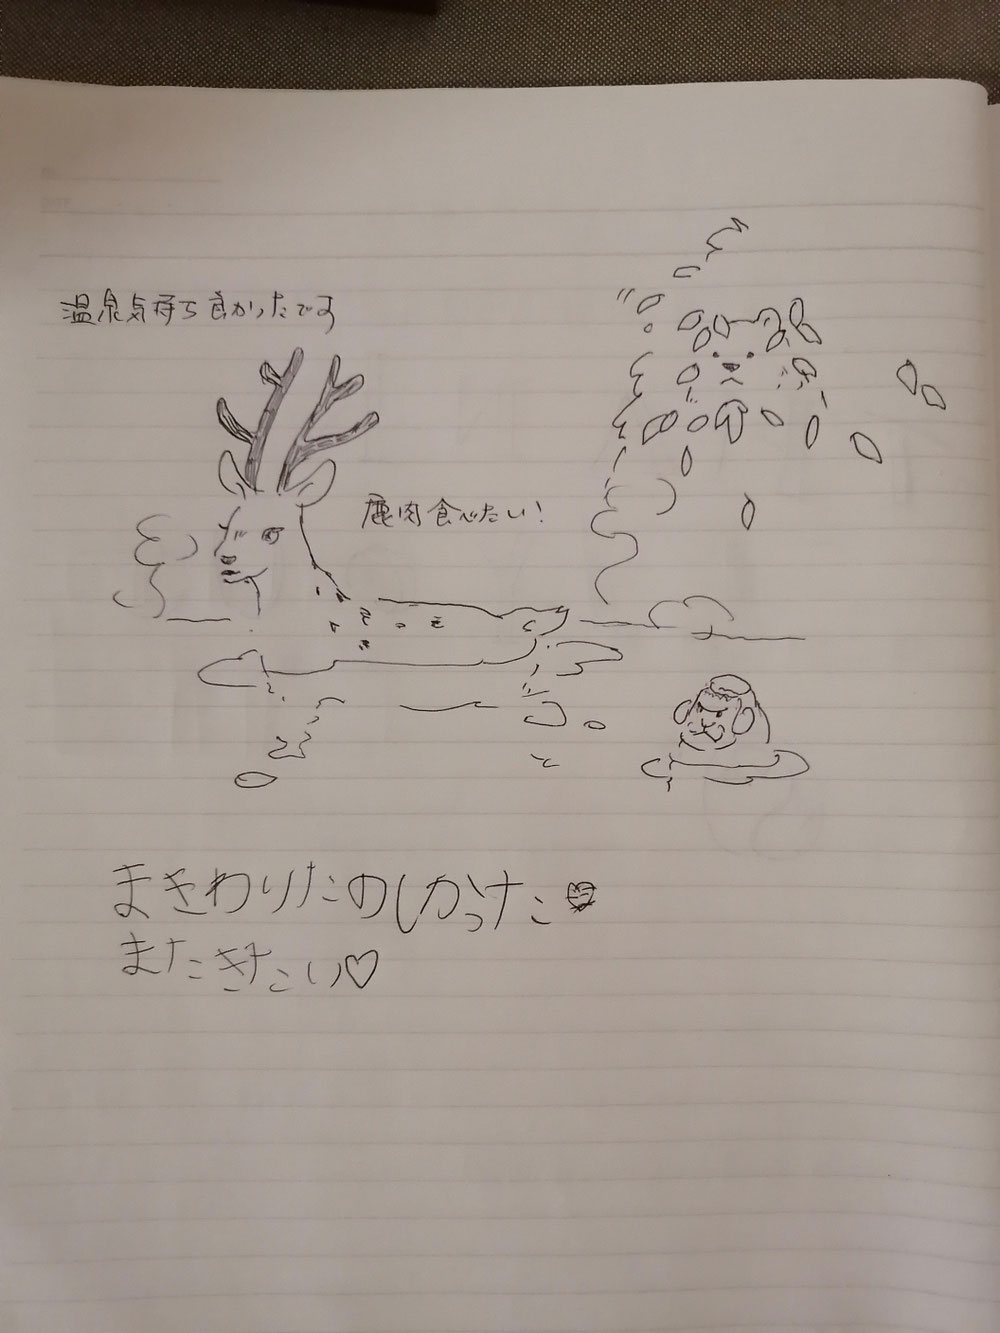 温泉気持ち良かったです
鹿肉食べたい!
まきわりたのしかった♥
またきたい♡